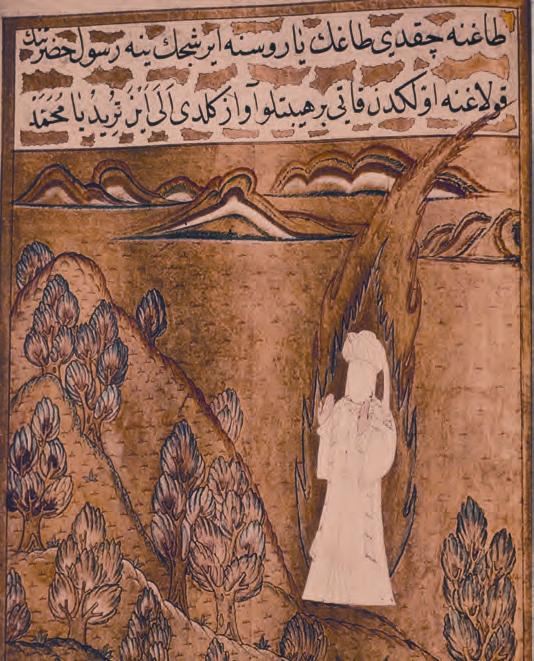 طاغنه چقدی طاغك یاروسنه ایرشجك ینه رسول حضرتنك
قولاغنه اولكدن قاتی بر هیبتلو آواز كلدی الی این ترید یا محمد